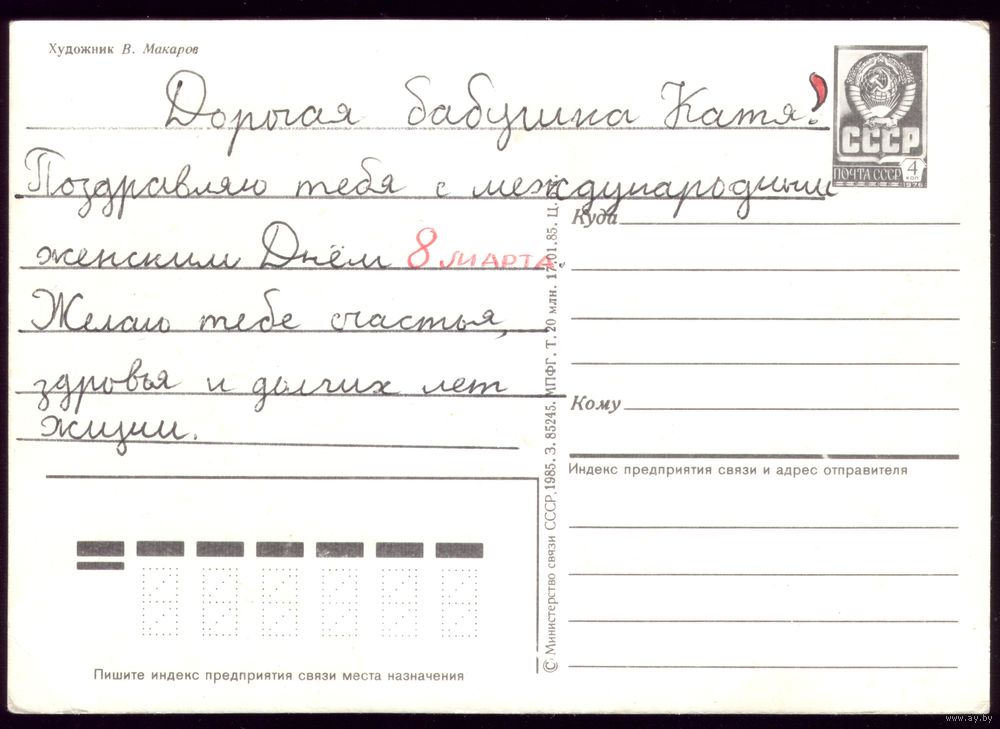 Художник В. Макаров
Дорогая бабушка Катя!
Поздравляю тебя с международным
женским Днём 8 МАРТА.
Желаю тебе счастья,
здоровья и долгих лет
жизни.
СССР
ПОЧТА СССР
4
КОП
1976
Куда
Кому
Индекс предприятия связи и адрес отправителя
© Министерство связи СССР, 1985. З. 85245. МПФГ. Т. 20 млн. 17.01.85. Ц.
Пишите индекс предприятия связи места назначения
www.ay.by